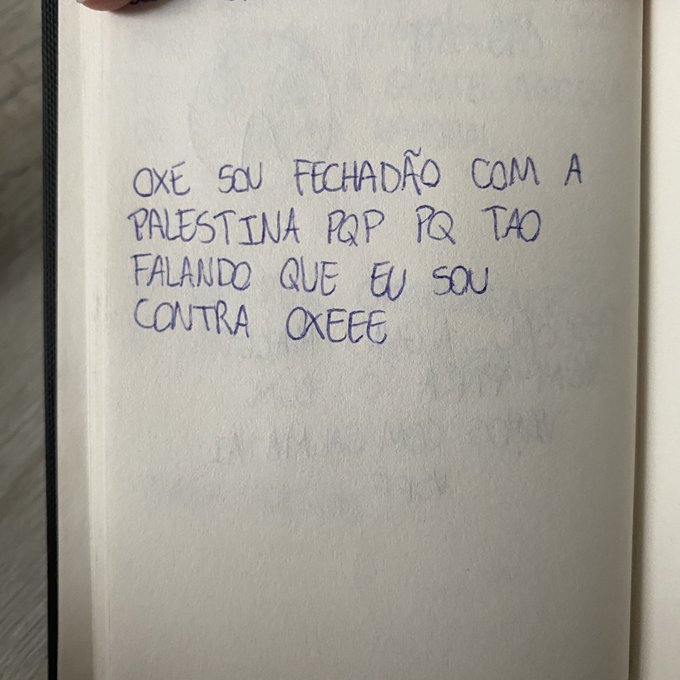 OXE SOU FECHADÃO COM A
PALESTINA PQP PQ TAO
FALANDO QUE EU SOU
CONTRA OXEEE